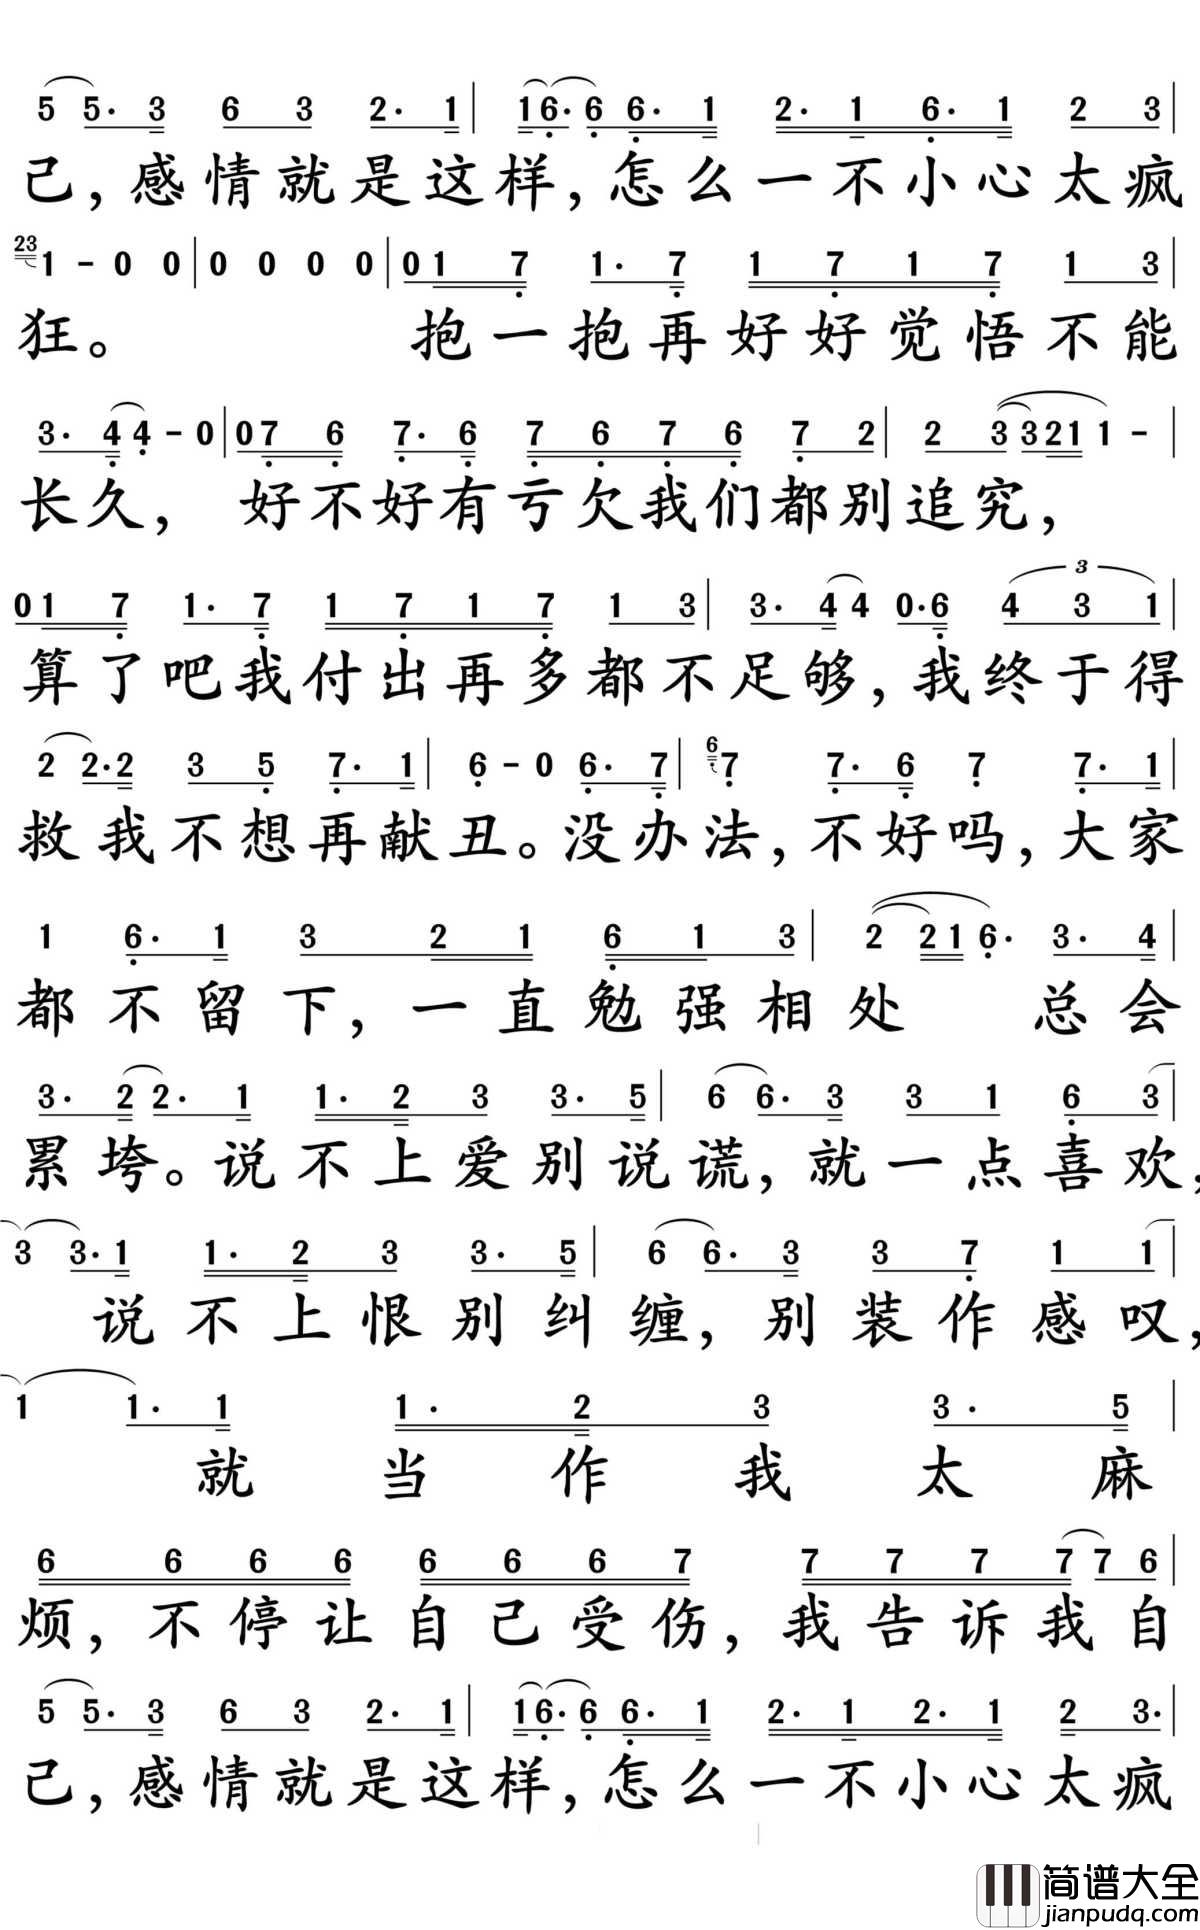 5 5· 3 6 3 2· 1 | 1 6· 6 6· 1 2· 1 6· 1 2 3 |
己，感情就是这样，怎么一不小心太疯
23 1 - 0 0 | 0 0 0 0 | 0 1 7 1· 7 1 7 1 7 1 3 |
狂。 抱一抱再好好觉悟不能
3· 4 4 - 0 | 0 7 6 7· 6 7 6 7 6 7 2 | 2 3 3 2 1 1 - |
长久， 好不好有亏欠我们都别追究，
0 1 7 1· 7 1 7 1 7 1 3 | 3· 4 4 0· 6 3 4 3 1 |
算了吧我付出再多都不足够，我终于得
2 2· 2 3 5 7· 1 | 6 - 0 6· 7 | 6 7 7· 6 7 7· 1 |
救我不想再献丑。没办法，不好吗，大家
1 6· 1 3 2 1 6 1 3 | 2 2 1 6· 3· 4 |
都不留下，一直勉强相处 总会
3· 2 2· 1 1· 2 3 3· 5 | 6 6· 3 3 1 6 3 |
累垮。说不上爱别说谎，就一点喜欢，
3 3· 1 1· 2 3 3· 5 | 6 6· 3 3 7 1 1 |
说不上恨别纠缠，别装作感叹，
1 1· 1 1· 2 3 3· 5 |
就当作我太麻
6 6 6 6 6 6 6 7 7 7 7 7 7 6 |
烦，不停让自己受伤，我告诉我自
5 5· 3 6 3 2· 1 | 1 6· 6 6· 1 2· 1 2· 1 2 3· |
己，感情就是这样，怎么一不小心太疯
简谱大全
jianpudq.com